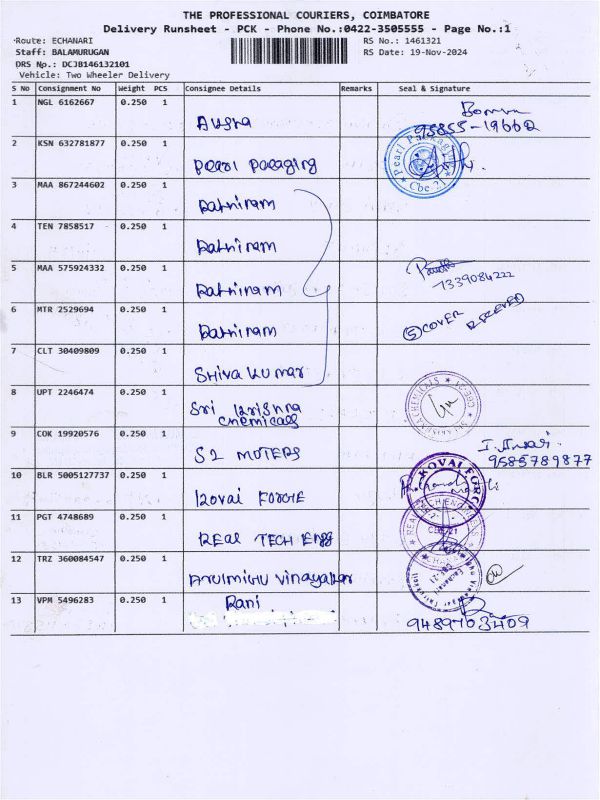 THE PROFESSIONAL COURIERS, COIMBATORE
Delivery Runsheet - PCK - Phone No.:0422-3505555 - Page No.:1
Route: ECHANARI RS No.: 1461321
Staff: BALAMURUGAN RS Date: 19-Nov-2024
DRS No.: DCJB146132101
Vehicle: Two Wheeler Delivery
S No Consignment No Weight PCS Consignee Details Remarks Seal & Signature
1 NGL 6162667 0.250 1
2 KSN 632781877 0.250 1 Pearl Packaging
Pearl Packaging Cbe 21
3 MAA 867244602 0.250 1 Rathiram
4 TEN 7858517 0.250 1 Rathiram
5 MAA 575924332 0.250 1 Rathiram
6 MTR 2529694 0.250 1 Rathiram
5 COVER RECEIVED
7 CLT 30409809 0.250 1 Shiva kumar
8 UPT 2246474 0.250 1 Sri Krishna
chemicals
9 COK 19920576 0.250 1 S2 MOTERS
9585789877
10 BLR 5005127737 0.250 1 Kovai FORGE
KOVAI FORGE
11 PGT 4748689 0.250 1 REAL TECH Engg
12 TRZ 360084547 0.250 1 Arulmighu vinayakar
13 VPM 5496283 0.250 1 Rani
9489703409